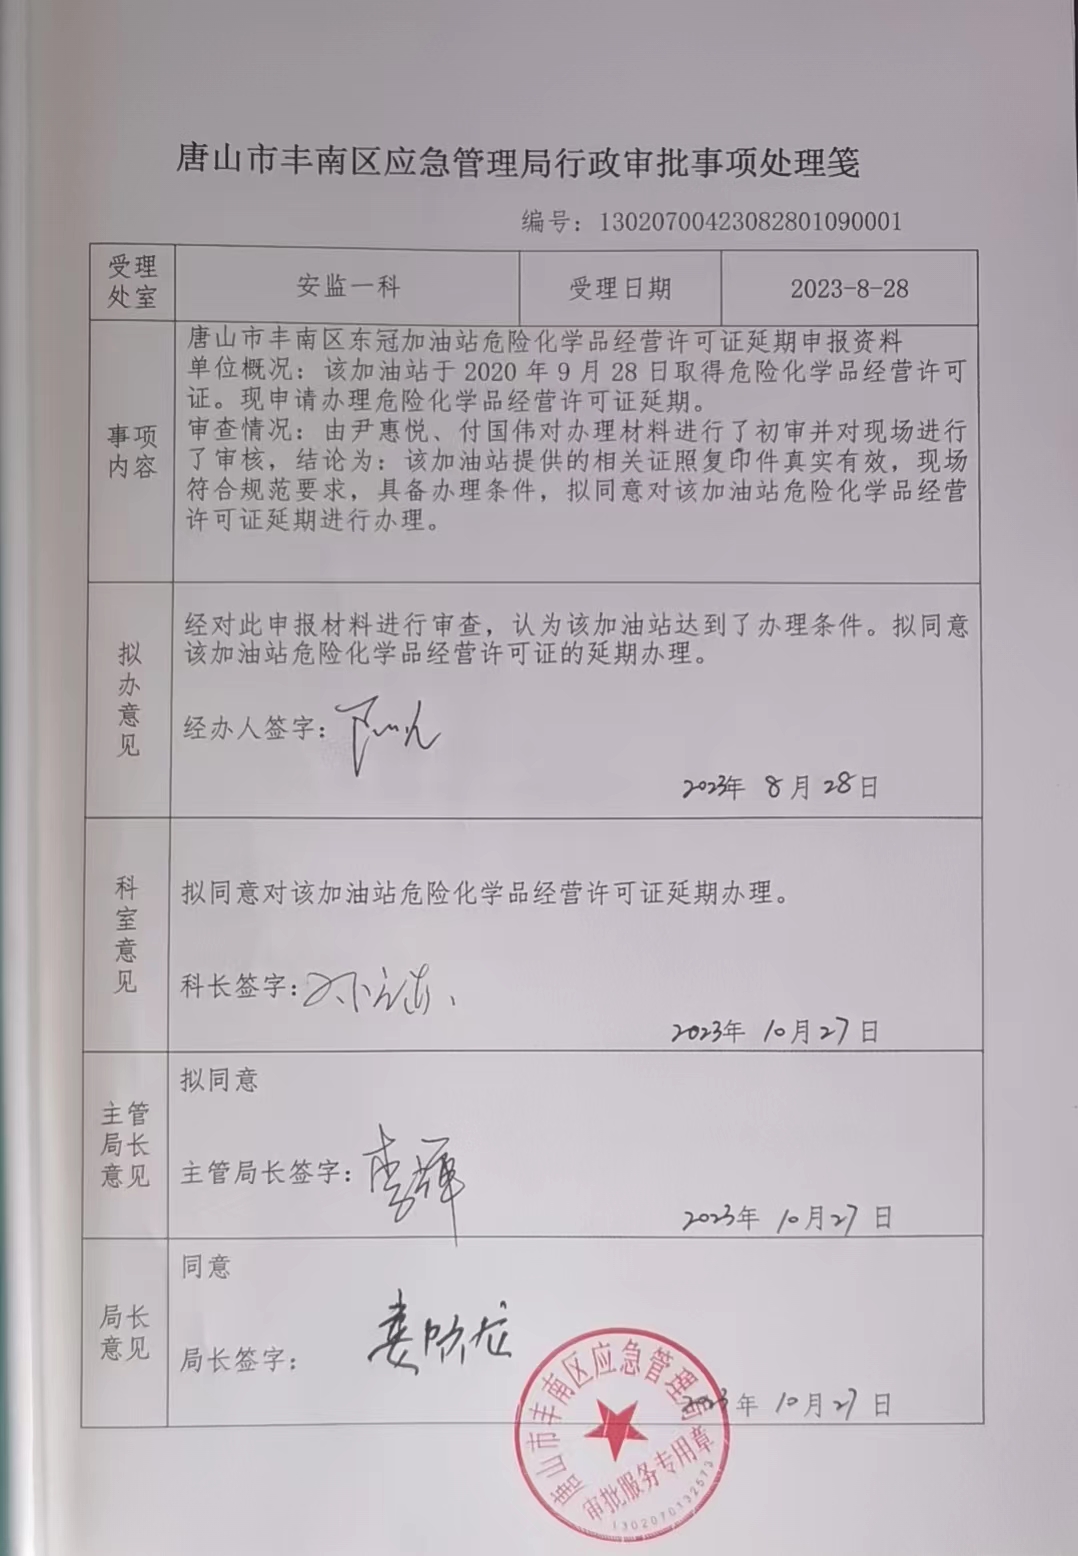 唐山市丰南区应急管理局行政审批事项处理笺
编号：13020700423082801090001
受理
处室
安监一科
受理日期
2023-8-28
事项
内容
唐山市丰南区东冠加油站危险化学品经营许可证延期申报资料
单位概况：该加油站于 2020 年 9 月 28 日取得危险化学品经营许可
证。现申请办理危险化学品经营许可证延期。
审查情况：由尹惠悦、付国伟对办理材料进行了初审并对现场进行
了审核，结论为：该加油站提供的相关证照复印件真实有效，现场
符合规范要求，具备办理条件，拟同意对该加油站危险化学品经营
许可证延期进行办理。
拟
办
意
见
经对此申报材料进行审查，认为该加油站达到了办理条件。拟同意
该加油站危险化学品经营许可证的延期办理。
经办人签字：
2023年 8月28日
科
室
意
见
拟同意对该加油站危险化学品经营许可证延期办理。
科长签字：
2023年 10月27日
主管
局长
意见
拟同意
主管局长签字：李辉
2023年 10月27日
局长
意见
同意
局长签字：
2023年 10月27日
唐山市丰南区应急管理局
审批服务专用章